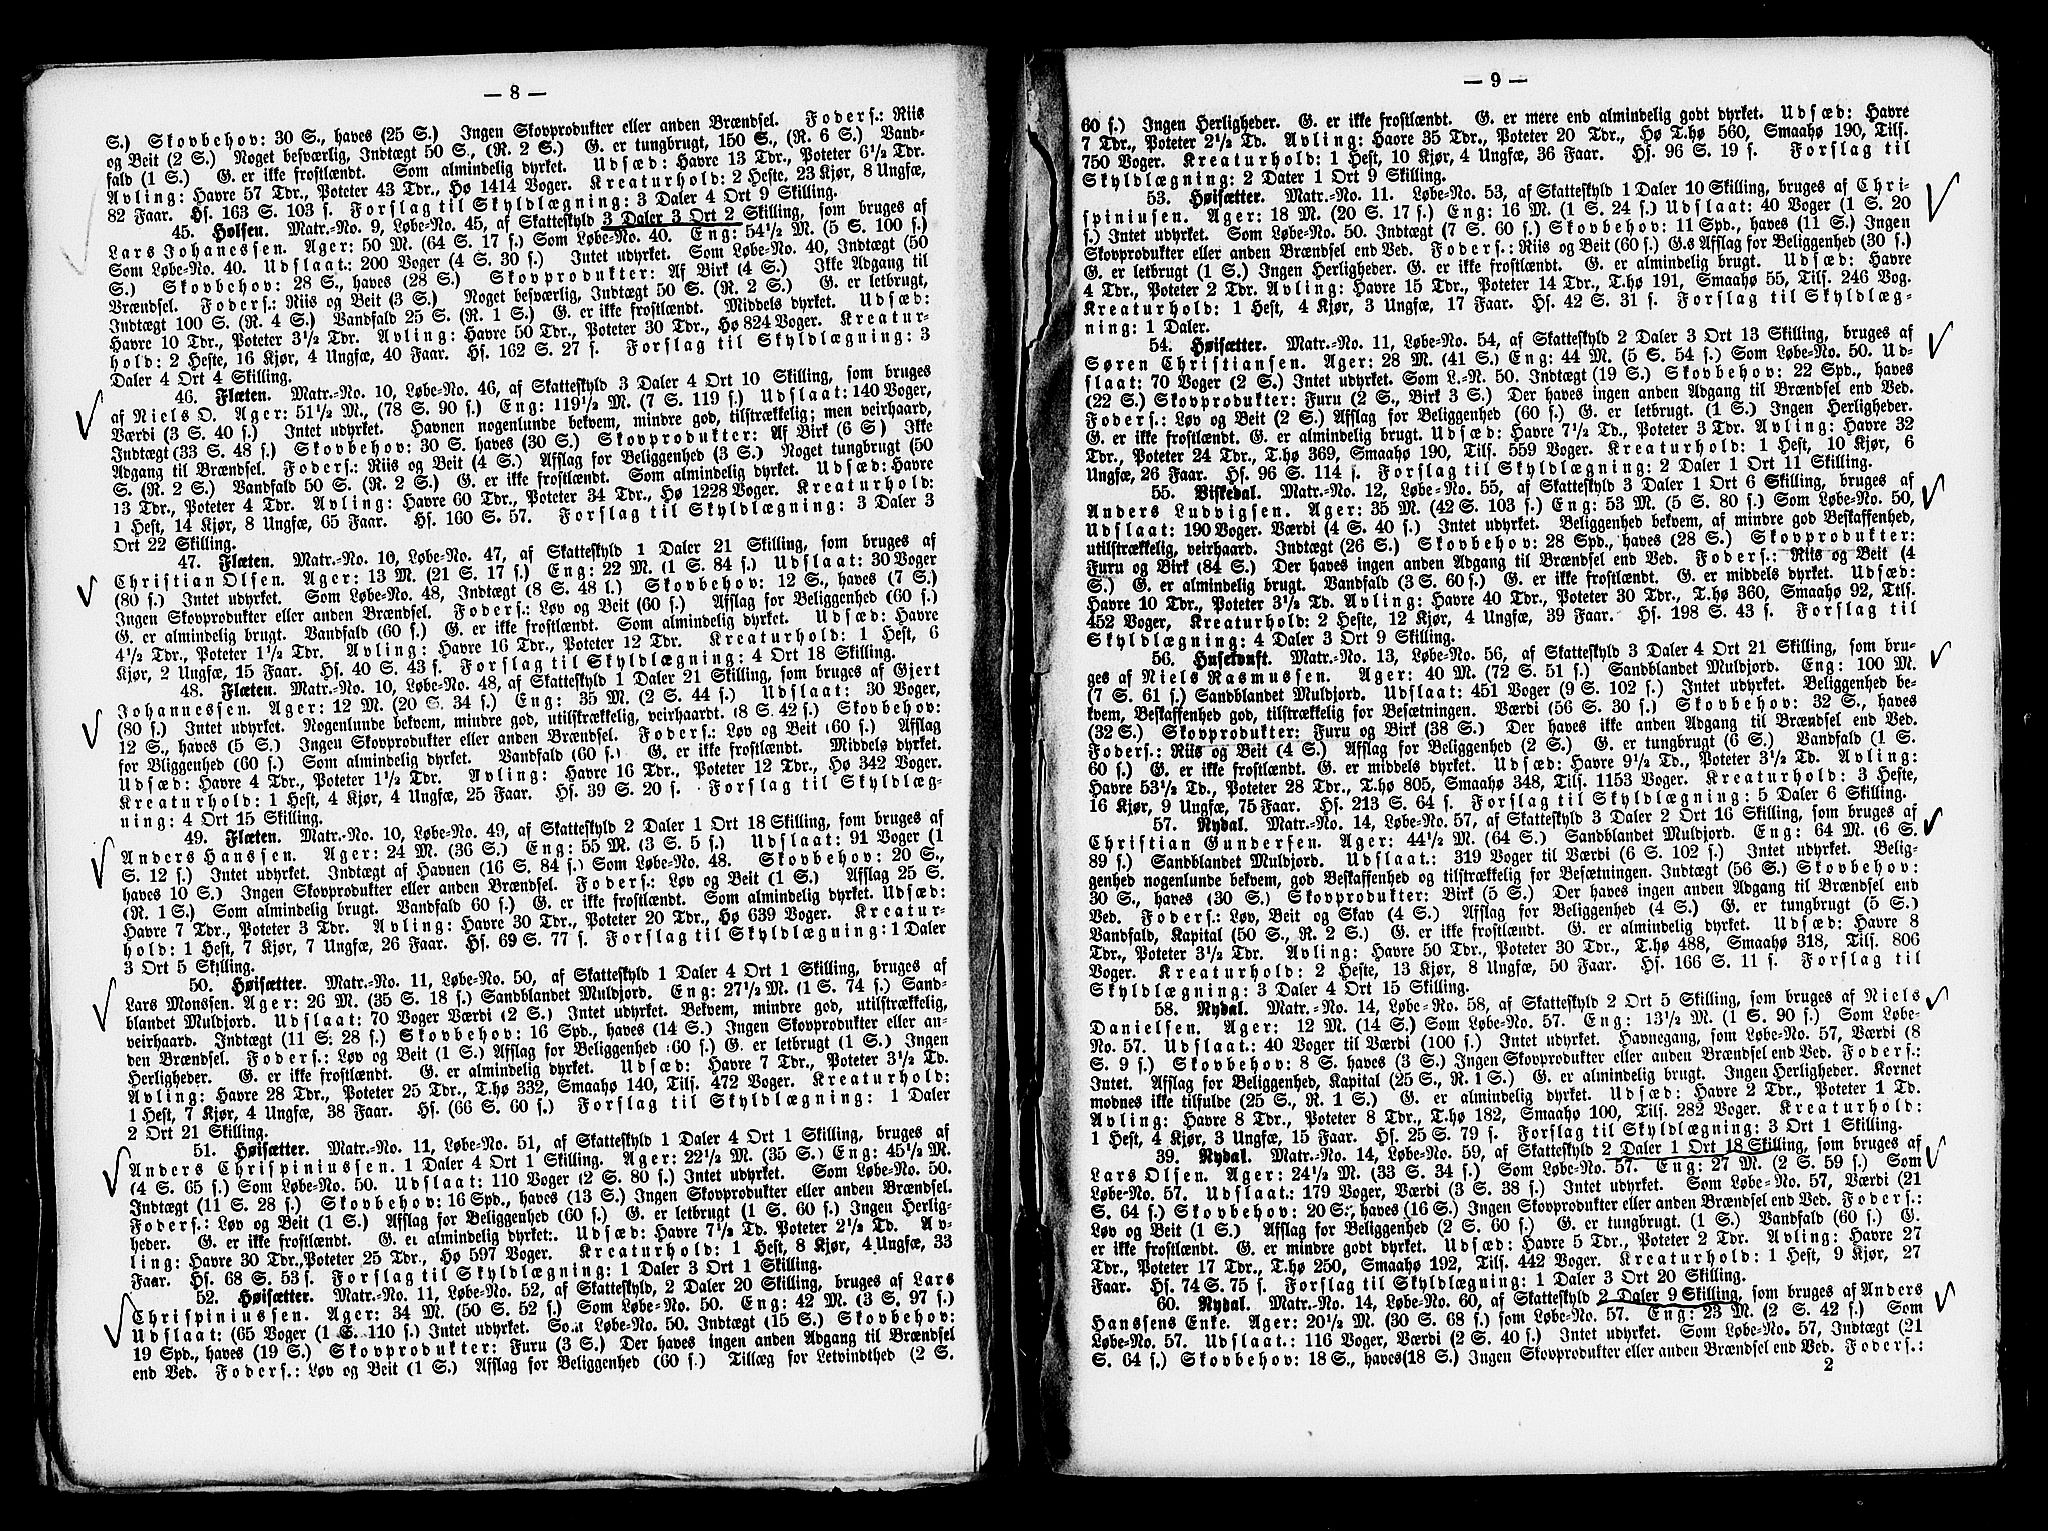 — 8 —
S.) Skovbehov: 30 S., haves (25 S.) Ingen Skovprodukter eller anden Brændsel. Foders.: Riis
og Beit (2 S.) Noget besværlig, Indtægt 50 S., (R. 2 S.) G. er tungbrugt, 150 S., (R. 6 S.) Vand-
fald (1 S.) G. er ikke frostlændt. Som almindelig dyrket. Udsæd: Havre 13 Tdr., Poteter 6½ Tdr.
Avling: Havre 57 Tdr., Poteter 43 Tdr., Hø 1414 Voger. Kreaturhold: 2 Heste, 23 Kjør, 8 Ungfæ,
82 Faar. Hs. 163 S. 103 s. Forslag til Skyldlægning: 3 Daler 4 Ort 9 Skilling.
45. Holsen. Matr.-No. 9, Løbe-No. 45, af Skatteskyld 3 Daler 3 Ort 2 Skilling, som bruges af
Lars Johanessen. Ager: 50 M. (64 S. 17 s.) Som Løbe-No. 40. Eng: 54½ M. (5 S. 100 s.)
Som Løbe-No. 40. Udslaat: 200 Voger (4 S. 30 s.) Intet udyrket. Som Løbe-No. 40, Indtægt (50
S.) Skovbehov: 28 S., haves (28 S.) Skovprodukter: Af Birk (4 S.) Ikke Adgang til
Brændsel. Foders.: Riis og Beit (3 S.) Noget besværlig, Indtægt 50 S. (R. 2 S.) G. er letbrugt,
Indtægt 100 S. (R. 4 S.) Vandfald 25 S. (R. 1 S.) G. er ikke frostlændt. Middels dyrket. Udsæd:
Havre 10 Tdr., Poteter 3½ Tdr. Avling: Havre 50 Tdr., Poteter 30 Tdr., Hø 824 Voger. Kreatur-
hold: 2 Heste, 16 Kjør, 4 Ungfæ, 40 Faar. Hs. 162 S. 27 s. Forslag til Skyldlægning: 3
Daler 4 Ort 4 Skilling.
46. Flæten. Matr.-No. 10, Løbe-No. 46, af Skatteskyld 3 Daler 4 Ort 10 Skilling, som bruges
af Niels O. Ager: 51½ M., (78 S. 90 s.) Eng: 119½ M. (7 S. 119 s.) Udslaat: 140 Voger,
Værdi (3 S. 40 s.) Intet udyrket. Havnen nogenlunde bekvem, mindre god, tilstrækkelig; men veirhaard,
Indtægt (33 S. 48 s.) Skovbehov: 30 S. haves (30 S.) Skovprodukter: Af Birk (6 S) Ikke
Adgang til Brændsel. Foders.: Riis og Beit (4 S.) Afslag for Beliggenhed (3 S.) Noget tungbrugt (50
S. (R. 2 S.) Vandfald 50 S. (R. 2 S.) G. er ikke frostlændt. Som almindelig dyrket. Udsæd: Havre
13 Tdr., Poteter 4 Tdr. Avling: Havre 60 Tdr., Poteter 34 Tdr., Hø 1228 Voger. Kreaturhold:
1 Heft, 14 Kjør, 8 Ungfæ, 65 Faar. Hs. 160 S. 57. Forslag til Skyldlægning: 3 Daler 3
Ort 22 Skilling.
47. Flæten. Matr.-No. 10, Løbe-No. 47, af Skatteskyld 1 Daler 21 Skilling, som bruges af
Christian Olsen. Ager: 13 M. (21 S. 17 s.) Eng: 22 M. (1 S. 84 s.) Udslaat: 30 Voger
(80 s.) Intet udyrket. Som Løbe-No. 48, Indtægt (8 S. 48 l.) Skovbehov: 12 S., haves (7 S.)
Ingen Skovprodukter eller anden Brændsel. Foders.: Løv og Beit (60 s.) Afslag for Beliggenhed (60 s.)
G. er almindelig brugt. Vandfald (60 s.) G. er ikke frostlændt. Som almindelig dyrket. Udsæd: Havre
4½ Tdr., Poteter 1½ Tdr. Avling: Havre 16 Tdr., Poteter 12 Tdr. Kreaturhold: 1 Heft, 6
Kjør, 2 Ungfæ, 15 Faar. Hs. 40 S. 43 s. Forslag til Skyldlægning: 4 Ort 18 Skilling.
48. Flæten. Matr.-No. 10, Løbe-No. 48, af Skatteskyld 1 Daler 21 Skilling, som bruges af Gjert
Johannessen. Ager: 12 M. (20 S. 34 s.) Eng: 35 M. (2 S. 44 s.) Udslaat: 30 Voger,
(80 s.) Intet udyrket. Nogenlunde bekvem, mindre god, utilstrækkelig, veirhaardt. (8 S. 42 s.) Skovbehov:
12 S., haves (5 S.) Ingen Skovprodukter eller anden Brændsel. Foders.: Løv og Beit (60 s.) Afslag
for Bliggenhed (60 S.) Som almindelig dyrket. Vandfald (60 s.) G. er ikke frostlændt. Middels dyrket.
Udsæd: Havre 4 Tdr., Poteter 1½ Tdr. Avling: Havre 16 Tdr., Poteter 12 Tdr., Hø 342 Voger.
Kreaturhold: 1 Heft, 4 Kjør, 4 Ungfæ, 25 Faar. Hs. 39 S. 20 s. Forslag til Skyldlæg-
ning: 4 Ort 15 Skilling.
49. Flæten. Matr.-No. 10, Løbe-No. 49, af Skatteskyld 2 Daler 1 Ort 18 Skilling, som bruges af
Anders Hanssen. Ager: 24 M. (36 S.) Eng: 55 M. (3 S. 5 s.) Udslaat: 91 Voger (1
S. 12 s.) Intet udyrket. Indtægt af Havnen (16 S. 84 s.) Som Løbe-No. 48. Skovbehov: 20 S.,
haves 10 S.) Ingen Skovprodukter eller anden Brændsel. Foders.: Løv og Beit (1 S.) Afslag 25 S.
(R. 1 S.) Som almindelig brugt. Vandfald 60 s.) G. er ikke frostlændt. Som almindelig dyrket. Udsæd:
Havre 7 Tdr., Poteter 3 Tdr. Avling: Havre 30 Tdr., Poteter 20 Tdr., Hø 639 Voger. Kreatur-
hold: 1 Heft, 7 Kjør, 7 Ungfæ, 26 Faar. Hs. 69 S. 77 s. Forslag til Skyldlægning: 1 Daler
3 Ort 5 Skilling.
50. Høisætter. Matr.-No. 11, Løbe-No. 50, af Skatteskyld 1 Daler 4 Ort 1 Skilling, bruges af
Lars Monssen. Ager: 26 M. (35 S. 18 s.) Sandblandet Muldjord. Eng: 27½ M. (1 S. 74 s.) Sand-
blandet Muldjord. Udslaat: 70 Voger Værdi (2 S.) Intet udyrket. Bekvem, mindre god, utilstrækkelig,
veirhaard. Indtægt (11 S. 28 s.) Skovbehov: 16 Spd., haves (14 S.) Ingen Skovprodukter eller an-
den Brændsel. Foders.: Løv og Beit (1 S.) Afslag for Beliggenhed (60 s.) G. er letbrugt (1 S.) Ingen
Herligheder. G. er ikke frostlændt. G. er almindelig dyrket. Udsæd: Havre 7 Tdr., Poteter 3½ Td.
Avling: Havre 28 Tdr., Poteter 25 Tdr., T.hø 332, Smaahø 140, Tils. 472 Voger. Kreaturhold:
1 Heft, 7 Kjør, 4 Ungfæ, 38 Faar. Hs. (66 S. 60 s.) Forslag til Skyldlægning: 1 Daler
2 Ort 21 Skilling.
51. Høisætter. Matr.-No. 11, Løbe-No. 51, af Skatteskyld 1 Daler 4 Ort 1 Skilling, bruges af
Anders Chrispiniussen. 1 Daler 4 Ort 1 Skilling. Ager: 22½ M. (35 S.) Eng: 45½ M.
(4 S. 65 s.) Som Løbe-No. 50. Udslaat: 110 Voger (2 S. 80 s.) Intet udyrket. Som Løbe-No. 50.
Indtægt (11 S. 28 s.) Skovbehov: 16 Spd., haves (13 S.) Ingen Skovprodukter eller anden Brændsel.
Foders.: Løv og Beit (1 S.) Afslag for Beliggenhed (60 s.) G. er letbrugt (1 S. 60 s.) Ingen Herlig-
heder. G. er ikke frostlændt. G. et almindelig dyrket:. Udsæd: Havre 7½ Td. Poteter 2½ Td. Av-
ling: Havre 30 Tdr., Poteter 25 Tdr., Hø 597 Voger. Kreaturhold: 1 Heft, 8 Kjør, 4 Ungfæ, 33
Faar. Hs. 68 S. 53 s. Forslag til Skyldlægning: 1 Daler 3 Ort 1 Skilling.
52. Høisætter. Matr.-No. 11, Løbe-No. 52, af Skatteskyld, 2 Daler 20 Skilling, bruges af Lars
Chrispiniussen. Ager: 34 M. (50 S. 52 s.) Som Løbe-No. 50. Eng: 42 M. (3 S. 97 s.)
Udslaat: (65 Voger (1 S. 110 s.) Intet udyrket. Som Løbe-No. 50. Indtægt (15 S.) Skovbehov:
19 Spd., haves (19 S.) Skovprodukter: Furu (3 S.) Der haves ingen anden Adgang til Brændsel
end Ved. Foders.: Løv og Beit (1 S.) Afslag for Beliggenhed (60 s.) Tillæg for Letvindthed (2 S.
— 9 —
60 s.) Ingen Herligheder. G. er ikke frostlændt. G. er mere end almindelig godt dyrket. Udsæd: Havre
7 Tdr., Poteter 2½ Td. Avling: Haore 35 Tdr., Poteter 20 Tdr., Hø T.hø 560, Smaahø 190, Tils.
750 Voger. Kreaturhold: 1 Heft, 10 Kjør, 4 Ungfæ, 36 Faar. Hs. 96 S. 19 s. Forslag til
Skyldlægning: 2 Dater 1 Ort 9 Skilling.
53. Høisætter. Matr.-No. 11. Løbe-No. 53, af Skatteskyld 1 Daler 10 Skilling, bruges af Chri-
spiniusen. Ager: 18 M. (20 S. 17 s.) Eng: 16 M. (1 S. 24 s.) Udslaat: 40 Voger (1 S. 20
s.) Intet udyrket. Som Løbe-No. 50. Indtægt (7 S. 60 s.) Skovbehov: 11 Spd., haves (11 S.) Ingen
Skovprodukter eller anden Brændsel end Ved. Foders.: Riis og Beit (60 s.) G.s Afslag for Beliggenhed (30 s.)
G. er letbrugt (1 S.) Ingen Herligheder. G. er ikke frostlændt. G. er almindelig brugt. Udsæd: Havre
4 Tdr., Poteter 2 Tdr. Avling: Havre 15 Tdr., Poteter 14 Tdr., T.hø 191, Smaahø 55, Tils. 246 Vog.
Kreaturhold: 1 Heft, 4 Kjør, 3 Ungfæ, 17 Faar. Hs. 42 S. 31 s. Forslag til Skyldlæg-
ning: 1 Daler.
54. Høisætter. Matr.-No. 11, Løbe-No. 54, af Skatteskyld 2 Daler 3 Ort 13 Skilling, bruges af
Søren Christiansen. Ager: 28 M. (41 S.) Eng: 44 M. (5 S. 54 s.) Som Løbe-No. 50. Ud-
slaat: 70 Voger (2 S.) Intet udyrket. Som L.-N. 50. Indtægt (19 S.) Skovbehov: 22 Spd., haves
(22 S.) Skovprodukter: Furu (2 S., Birk 3 S.) Der haves ingen anden Adgang til Brændsel end Ved.
Foders.: Løv og Beit (2 S.) Afslag for Beliggenhed (60 s.) G. er letbrugt. (1 S.) Ingen Herligheder.
G. er ikke frostlændt. G. er almindelig brugt. Udsæd: Havre 7½ Td., Poteter 3 Tdr. Avling: Havre 32
Tdr., Poteter 24 Tdr., T.hø 369, Smaahø 190, Tils. 559 Voger. Kreaturhold: 1 Heft, 10 Kjør, 6
Ungfæ, 26 Faar. Hs. 96 S. 114 s. Forslag til Skyldlægning: 2 Daler 1 Ort 11 Skilling.
55. Viskedal. Matr.-No. 12, Løbe-No. 55, af Skatteskyld 3 Daler 1 Ort 6 Skilling, bruges af
Anders Ludvigsen. Ager: 35 M. (42 S. 103 s.) Eng: 53 M. (5 S. 80 s.) Som Løbe-No. 50,
Udslaat: 190 Voger. Værdi (4 S. 40 s.) Intet udyrket. Beliggenhed bekvem, af mindre god Beskaffenhed,
utilstrækkelig, veirhaard. Indtægt (26 S.) Skovbehov: 28 Spd., haves (28 S.) Skovprodukter:
Furu og Birk (84 S.) Der haves ingen anden Adgang til Brændsel end Ved. Foders.: Riis og Beit (4
S.) G. er almindelig brugt. Vandfald (3 S. 60 s.) G. er ikke frostlændt. G. er middels dyrket. Udsæd:
Havre 10 Tdr., Poteter 3½ Td. Avling: Havre 40 Tdr., Poteter 30 Tdr., T.hø 360, Smaahø 92, Tils.
452 Voger, Kreaturhold: 2 Heste, 12 Kjør, 4 Ungfæ, 39 Faar. Hs. 198 S. 43 s. Forslag til
Skyldlægning: 4 Daler 3 Ort 9 Skilling.
56. Husetuft. Matr.-No. 13, Løbe-No. 56, af Skatteskyld 3 Daler 4 Ort 21 Skilling, som bru-
ges af Niels Rasmussen. Ager: 40 M. (72 S. 51 s.) Sandblandet Muldjord. Eng: 100 M.
(7 S. 61 s.) Sandblandet Muldjord. Udslaat: 451 Voger (9 S. 102 s.) Intet udyrket. Beliggenhed be-
kvem, Beskaffenhed god, tilstrækkelig for Besætningen. Værdi (56 S. 30 s.) Skovbehov: 32 S., haves
(32 S.) Skovprodukter: Furu og Birk (38 S.) Der haves ikke anden Adgang til Brændsel end Ved.
Foders.: Riis og Beit (4 S.) Afslag for Beliggenhed (2 S.) G. er tungbrugt (6 S.) Vandfald (1 S.
60 s.) G. er ikke frostlændt. G. er middels dyrket. Udsæd: Havre 9½ Td., Poteter 3½ Td. Avling:
Havre 53½ Td., Poteter 28 Tdr., T.hø 805, Smaahø 348, Tils. 1153 Voger. Kreaturhold: 3 Heste,
16 Kjør, 9 Ungfæ, 75 Faar. Hs. 213 S. 64 s. Forslag til Skyldlægning: 5 Daler 6 Skilling.
57. Nydal. Matr.-No. 14, Løbe-No. 57, af Skatteskyld 3 Daler 2 Ort 16 Skilling, som bruges af
Christian Gundersen. Ager: 44½ M. (64 S.) Sandblandet Muldjord. Eng: 64 M. (6 S.
89 s.) Sandblandet Muldjord. Udslaat: 319 Voger til Værdi (6 S. 102 s.) Intet udyrket. Belig-
genhed nogenlunde bekvem, god Beskaffenhed og tilstrækkelig for Besætningen. Indtægt (56 S.) Skovbehov:
30 S., haves (30 S.) Skovprodukter: Birk (5 S.) Der haves ingen anden Adgang til Brændsel end
Ved. Foders.: Løv, Beit og Skav (4 S.) Afslag for Beliggenhed (4 S.) G. er tungbrugt (5 S.)
Vandfald, Kapital (50 S., R. 2 S.) G. er ikke frostlændt. G. er almindelig dyrket. Udsæd: Havre 8
Tdr., Poteter 3½ Tdr. Avling: Havre 50 Tdr., Poteter 30 Tdr., T.hø 488, Smaahø 318, Tils. 806
Voger. Kreaturhold: 2 Heste, 13 Kjør, 8 Ungfæ, 50 Faar. Hs. 166 S. 11 s. Forslag til
Skyldlægning: 3 Daler 4 Ort 15 Skilling.
58. Nydal. Matr.-No. 14, Løbe-No. 58, af Skatteskyld 2 Ort 5 Skilling, som bruges af Niels
Danielsen. Ager: 12 M. (14 S.) Som Løbe-No. 57. Eng: 13½ M. (1 S. 90 s.) Som Løbe-
No. 57. Udslaat: 40 Voger til Værdi (100 s.) Intet udyrket. Havnegang, som Løbe-No. 57, Værdi (8
S. 9 s.) Skovbehov: 8 S. haves (3 S.) Ingen Skovprodukter eller anden Brændsel end Ved. Foders.:
Intet. Afslag for Beliggenhed, Kapital (25 S., R. 1 S.) G. er almindelig brugt. Ingen Herligheder. Kornet
modnes ikke tilfulde (25 S., R. 1 S.) G. er almindelig dyrket. Udsæd: Havre 2 Tdr., Poteter 1 Td.
Avling: Havre 8 Tdr., Poteter 8 Tdr., T.hø 182, Smaahø 100, Tils. 282 Voger. Kreaturhold:
1 Heft, 4 Kjør, 3 Ungfæ, 15 Faar. Hs. 25 S. 79 s. Forslag til Skyldlægning: 3 Ort 1 Skilling.
39. Nydal. Matr.-No. 14, Løbe-No. 59, af Skatteskyld 2 Daler 1 Ort 18 Skilling, som bruges af
Lars Olsen. Ager: 24½ M. (33 S. 34 s.) Som Løbe-No. 57. Eng: 27 M. (2 S. 59 s.) Som
Løbe-No. 57. Udslaat: 179 Voger, Værdi (3 S. 38 s.) Intet udyrket. Som Løbe-No. 57, Værdi (21
S. 64 s.) Skovbehov: 20 S., haves (16 S.) Ingen Skovprodukter eller anden Brændsel end Ved. Foders.:
Løv og Beit (1 S.) Afslag for Beliggenhed (2 S. 60 s.) G. er tungbrugt. (1 S.) Vandfald (60 s.) G.
er ikke frostlændt. G. er mindre godt dyrket. Udsæd: Havre 5 Tdr., Poteter 2 Tdr. Avling: Havre 27
Tdr., Poteter 17 Tdr., T.hø 250, Smaahø 192, Tils. 442 Voger. Kreaturhold: 1 Heft, 9 Kjør, 27
Faar. Hs. 74 S. 75 s. Forslag til Skyldlægning: 1 Daler 3 Ort 20 Skilling.
60. Nydal. Matr.-No. 14, Løbe-No. 60, af Skatteskyld 2 Daler 9 Skilling, som bruges af Anders
Hanssens Enke. Ager: 20½ M. (30 S. 68 s.) som Løbe-No. 57. Eng: 23 M. (2 S. 42 s.) Som
Løbe-No. 57. Udslaat: 116 Voger, Værdi (2 S. 40 s.) Intet udyrket. Som Løbe-No. 57, Indtægt (21
S. 64 s.) Skovbehov: 18 S., haves (18 S.) Ingen Skovprodukter eller anden Brændsel end Ved. Foders.:
2